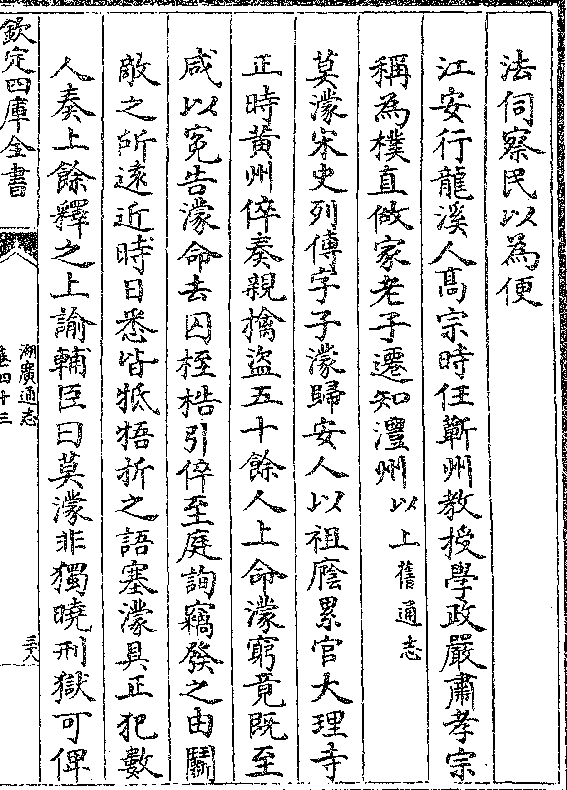 法伺察民以為便
江安行龍溪人髙宗時任蘄州教授學政嚴肅孝宗
稱為樸直做家老子遷知澧州以上舊通志
莫濛宋史列傳字子濛歸安人以祖廕累官大理寺
正時黄州倅奏親擒盗五十餘人上命濛窮竟既至
咸以寃告濛命去囚桎梏引倅至庭詢竊發之由鬭
敵之所遠近時日悉皆牴牾折之語塞濛具正犯數
人奏上餘釋之上諭輔臣曰莫濛非獨曉刑獄可俾
欽定四庫全書
湖廣通志
卷四十三
三八